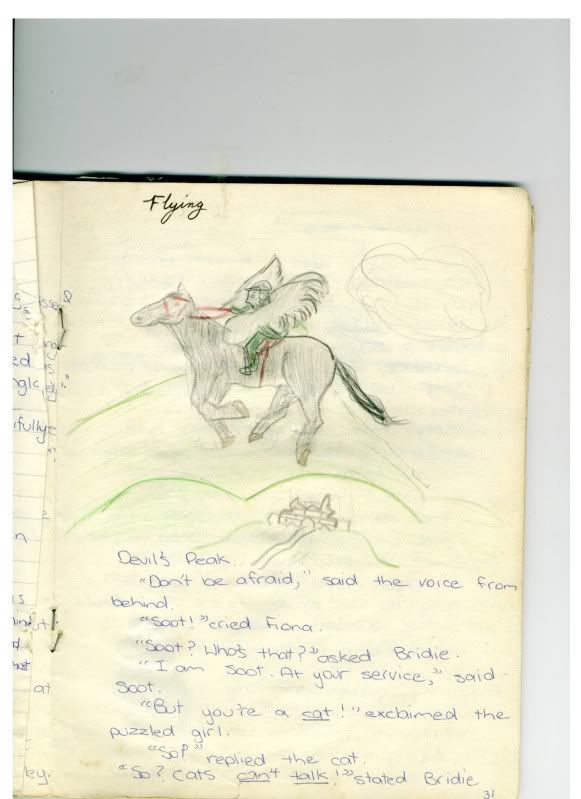 Flying
Devil's Peak.
"Don't be afraid," said the voice from
behind.
"Soot!" cried Fiona.
"Soot? Who's that?" asked Bridie.
"I am Soot. At your service," said
Soot.
"But you're a cat!" exclaimed the
puzzled girl.
"So?" replied the cat.
"So? Cats can't talk!" stated Bridie
31
at